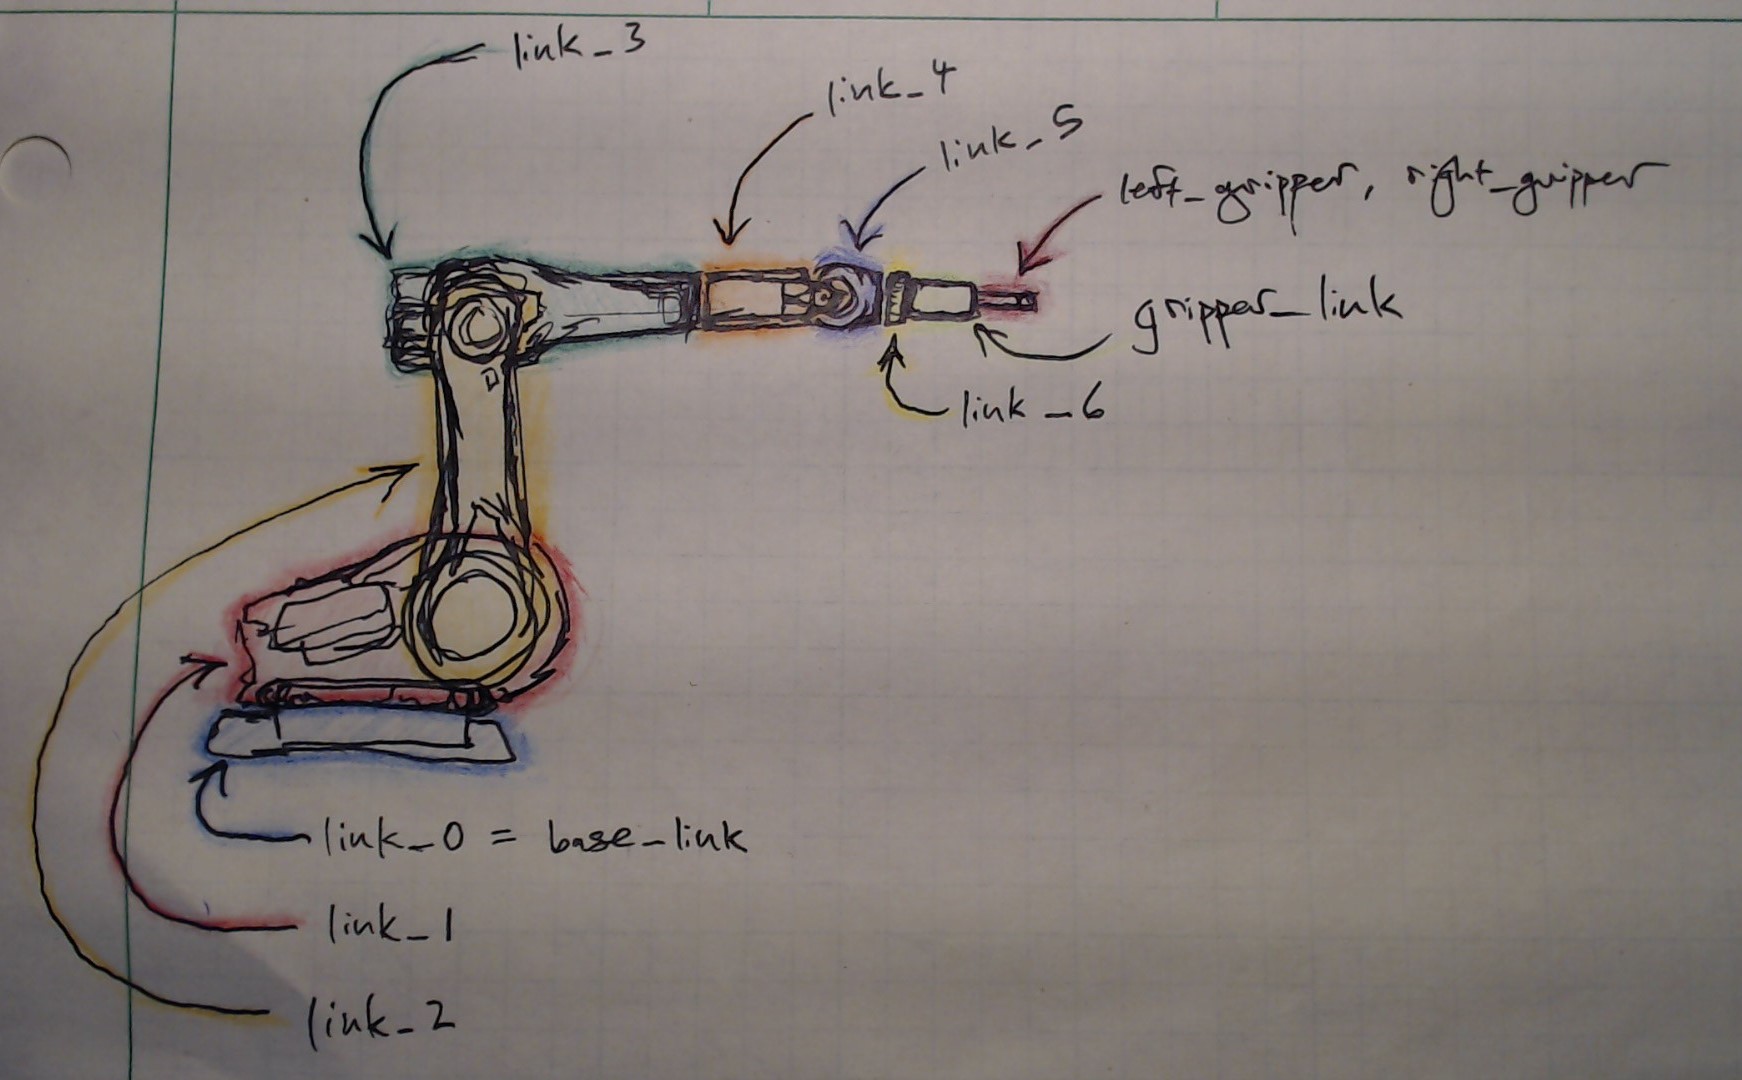 link_3
link_4
link_5
left_gripper, right_gripper
gripper_link
link_6
link_0 = base_link
link_1
link_2